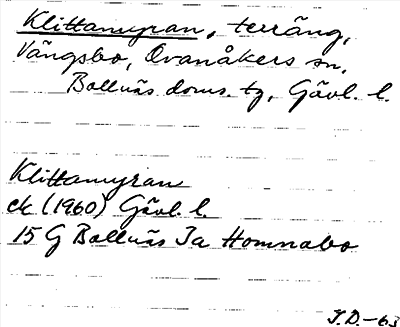 Klittamyran, terräng,
Vängsbo, Ovanåkers sn,
Bollnäs doms. tg, Gävl. l.
Klittamyran
ek (1960) Gävl. l.
15 G Bollnäs Ia Homnabo
I.D.-63